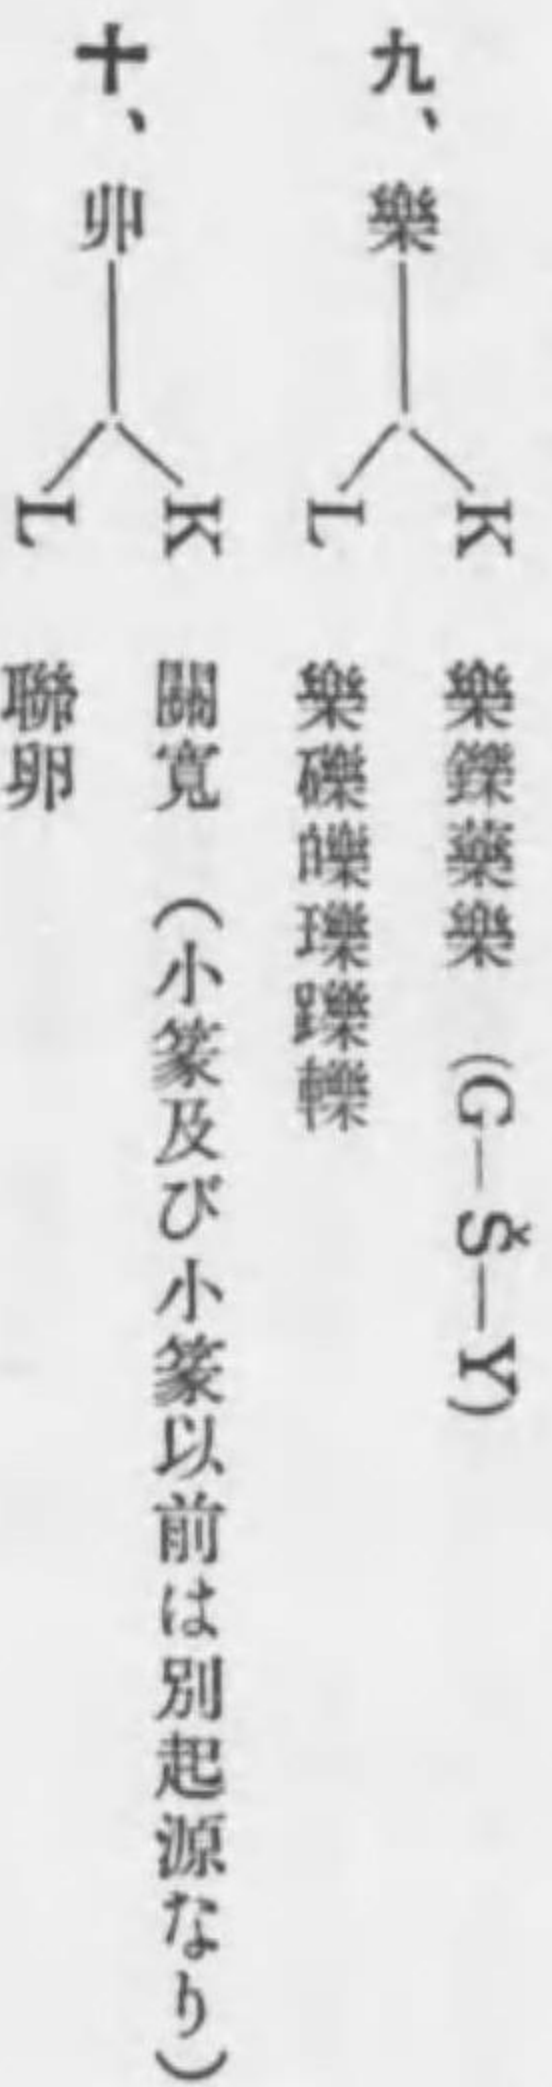 九、樂
K 樂鑠藥樂 (G—Š—Y)
L 樂礫皪瓅躒轢
十、卯
K 關寬 (小篆及び小篆以前は別起源なり)
L 聯卵